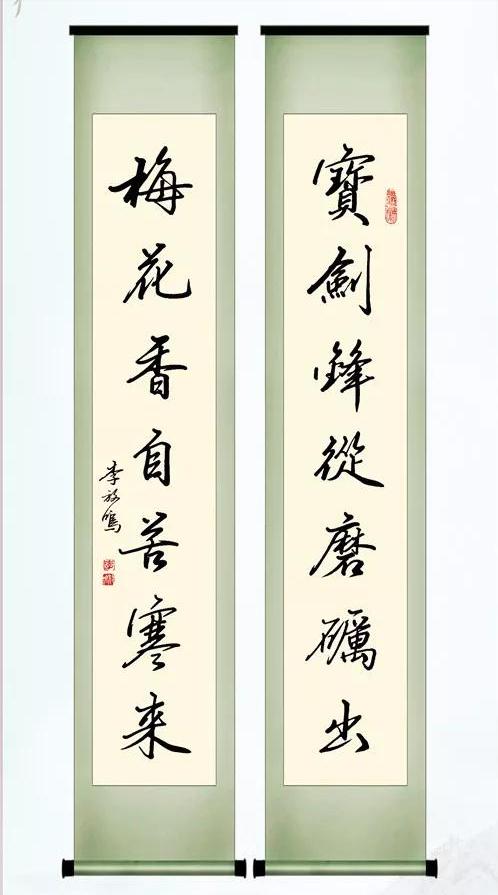 寶劍鋒從磨礪出
梅花香自苦寒来
李放鳴